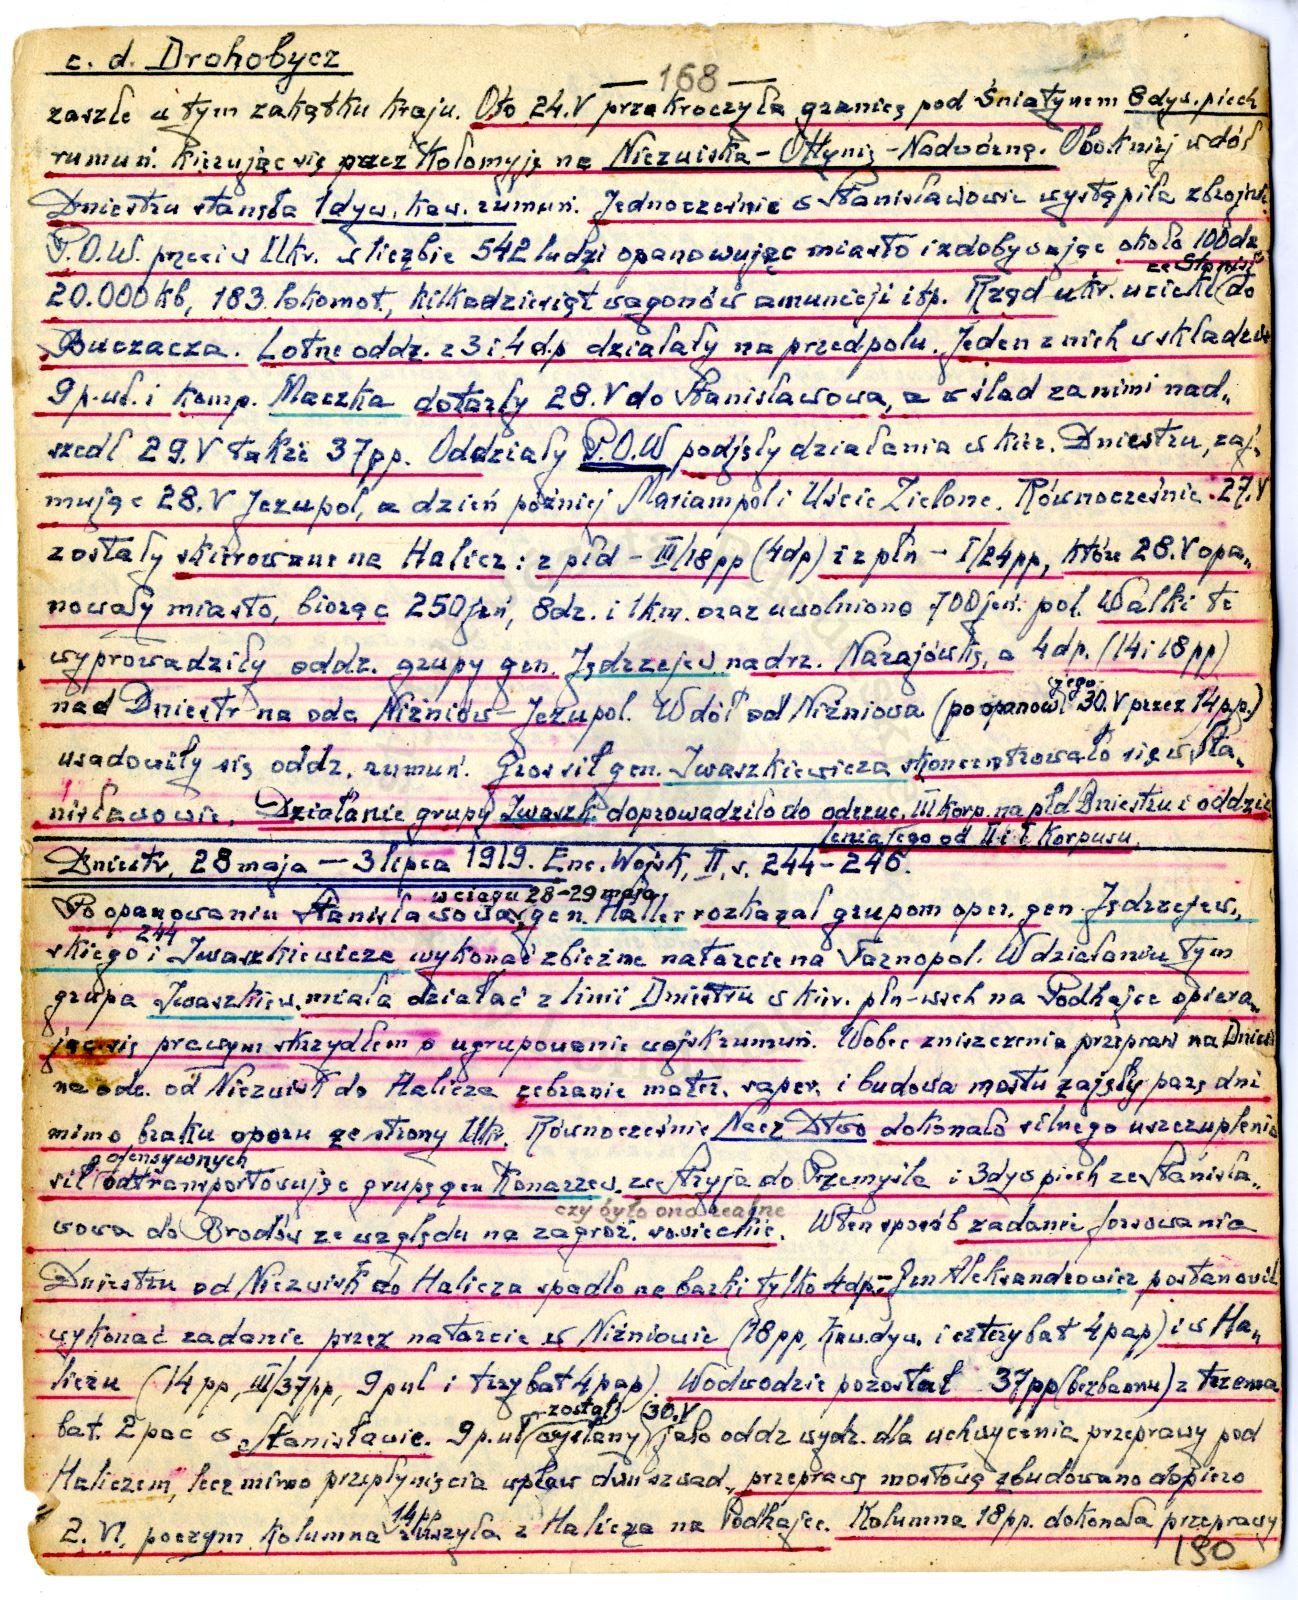 c. d. Drohobycz
— 168 —
zaszłe w tym zakątku kraju. Oto 24.V przekroczyła granicę pod Śniatynem 8 dyw. piech
rumuń. kierując się przez Kołomyję na Niezwiska – Ottynię – Nadwórnę. Obok niej wdół
Dniestru stanęła 1 dyw. kaw. rumuń. Jednocześnie w Stanisławowie wystąpiła zbrojnie
P.O.W. przeciw Ukr. w liczbie 542 ludzi opanowując miasto i zdobywając około 100 dz.
20.000 kb, 183 lokomot., kilkadziesiąt wagonów amunicji itp. Rząd ukr. uciekł ze Stanisł. do
Buczacza. Lotne oddz. z 3 i 4 dp działały na przedpolu. Jeden z nich w składzie
9 p.uł. i komp. Maczka dotarły 28.V do Stanisławowa, a w ślad za nimi nad„
szedł 29.V także 37 pp. Oddziały P.O.W podjęły działania w kier. Dniestru, zaj„
mując 28.V Jezupol, a dzień później Mariampol i Uście Zielone. Równocześnie 27.V
zostały skierowane na Halicz: z płd – III/18 pp (4dp) i z płn – I/24 pp, które 28.V opa„
nowały miasto, biorąc 250 jeń, 8 dz. i 1 km. oraz uwolniono 700 jeń. pol. Walki te
wyprowadziły oddz. grupy gen. Jędrzejew. nad rz. Narajówkę, a 4 dp. (14 i 18 pp)
nad Dniestr na odc Niżniów – Jezupol. Wdół od Niżniowa (po opanow. jego 30.V przez 14 p.p.)
usadowiły się oddz. rumuń. Gros sił gen. Iwaszkiewicza skoncentrowało się w Sta„
nisławowie. Działanie grupy Iwaszk. doprowadziło do odrzuc. III korp. na płd Dniestru i oddzie
lenia tego od II i I Korpusu.
Dniestr, 28 maja – 3 lipca 1919. Enc. Wojsk, II, s. 244–246.
Po opanowaniu Stanisławowa w ciągu 28–29 maja gen. Haller rozkazał grupom oper. gen. Jędrzejew„
244
skiego i Iwaszkiewicza wykonać zbieżne natarcie na Tarnopol. W działaniu tym
grupa Iwaszkiew. miała działać z linii Dniestru w kier. płn-wsch na Podhajce opiera„
jąc się prawym skrzydłem o ugrupowanie wojsk rumuń. Wobec zniszczenia przepraw na Dniest
na odc. od Niezwisk do Halicza zebranie mater. saper. i budowa mostu zajęły parę dni
mimo braku oporu ze strony Ukr. Równocześnie Nacz Dtwo dokonało silnego uszczuplenia
sił ofensywnych odtransportowując grupę gen Konarzew. ze Stryja do Przemyśla i 3 dyw piech ze Stanisła„
czy było ono realne
wowa do Brodów ze względu na zagroż. sowieckie. W ten sposób zadanie forsowania
Dniestru od Niezwisk do Halicza spadło na barki tylko 4 dp. – Gen Aleksandrowicz postanowił
wykonać zadanie przez natarcie w Niżniowie (18 pp, kaw. dyw. i cztery bat 4 pap) i w Ha„
liczu (14 pp, III/37 pp, 9 p uł i trzy bat 4 pap). W odwodzie pozostał 37 pp (bez baonu) z trzema
bat. 2 pac w Stanisławie. 9 p. uł został (wysłany) 30.V jako oddz wydz. dla uchwycenia przeprawy pod
Haliczem, lecz mimo przepłynięcia wpław dwu szwad., przeprawę mostową zbudowano dopiero
2. VI, poczym kolumna 14 pp ruszyła z Halicza na Podhajce. Kolumna 18 pp. dokonała przeprawy
190